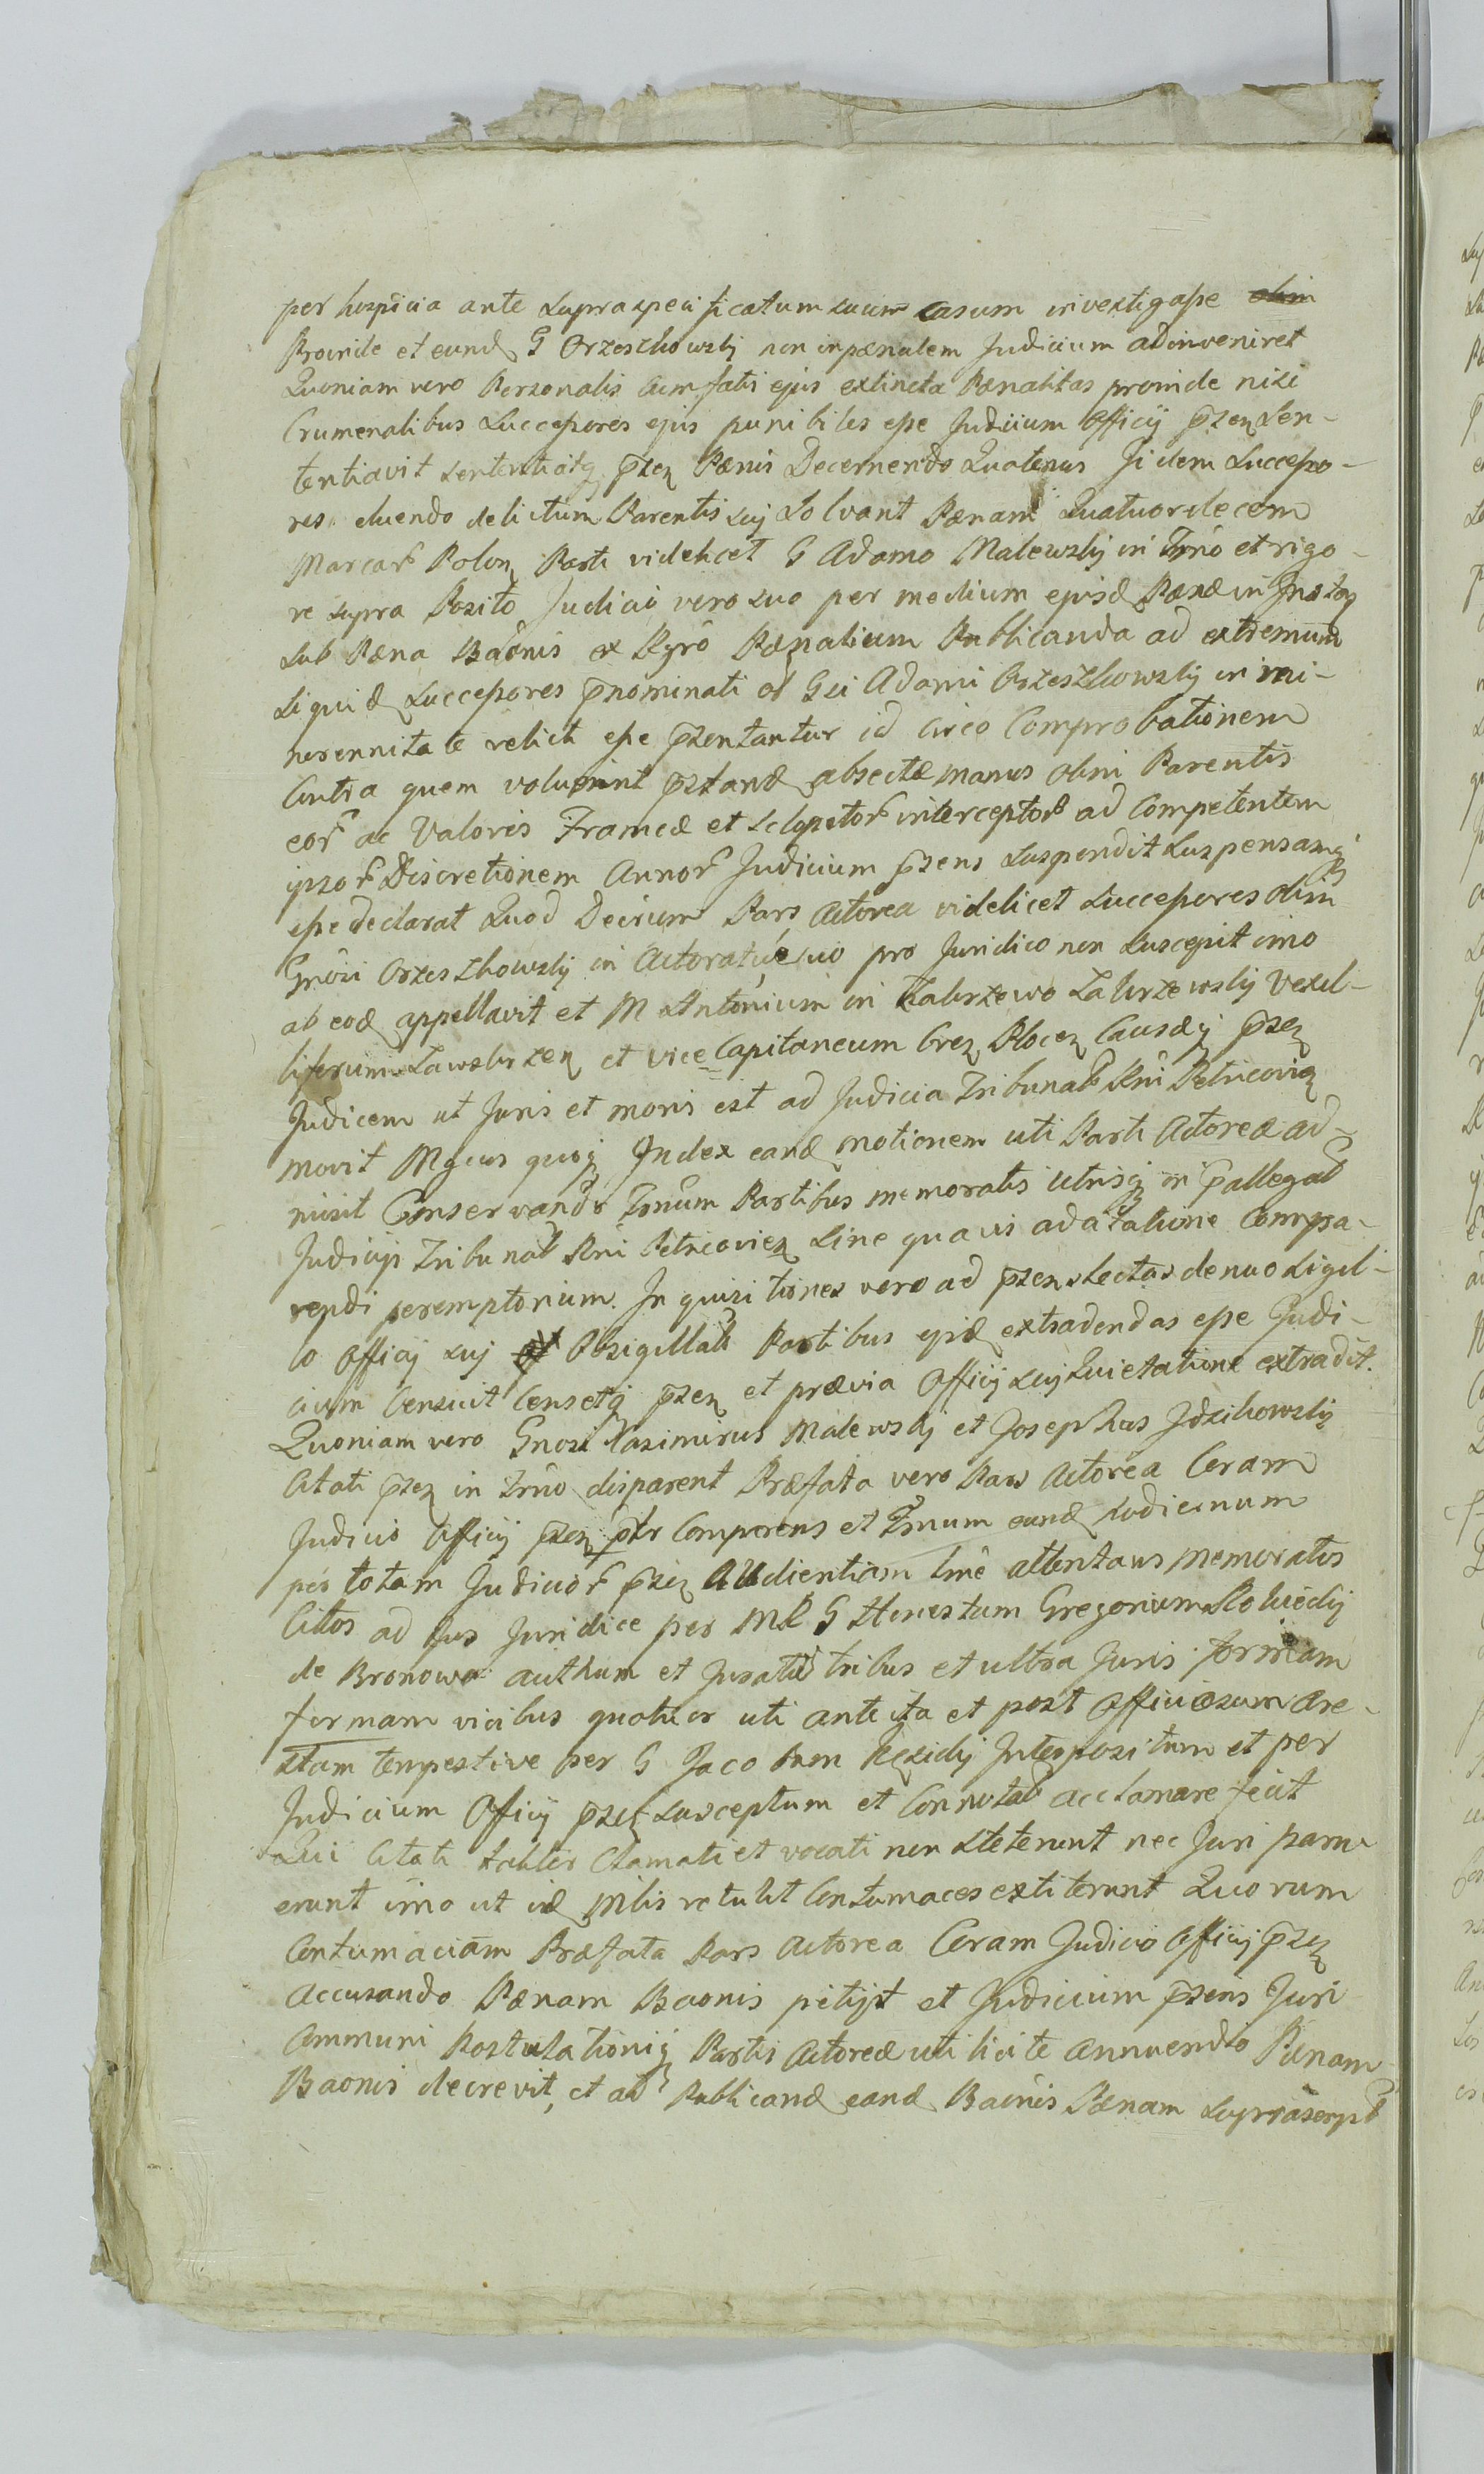 per hospicia ante supraspecificatum suum casum investigasse olim
Proinde et eund G Orzeszkowskj non in pænalem Judicium adinveniret
Quoniam vero Personalis cum fatis ejus extincta Pænalitas proinde nisi
Crumenalibus Successores ejus punibiles esse Judicium Officij p̄sen Sen-
tentiavit sententiatq p̄sen Pænis Decernendo Quatenus Jidem Successo-
res eluendo delictum Parentis suj Solvant Pænam Quatuordecem
Marcar Polon Parti videlicet G Adamo Malewskj in Trno et rigo-
re supra Posito Judicio vero suo per medium ejusd Pænæ in
sub Pæna Baōnis ex Rgro Pænalium Publicanda ad extremum
siquid Successores p̄nominati ol Gsi Adami Orzeszkowskj in mi-
norennitate relicti esse p̄sentantur id circo Comprobationem
Contra quem voluerint p̄stand absectæ manus olim Parentis
eor ac Valoris Frameæ et Sclopetor interceptor ad Competentem
ipsor Discretionem Annor Judicium p̄sens Suspendit Suspensamq
esse declarat Quod Decrum Pars Actorea videlicet Successores olim
Gnosi Orzeszkowskj in Actoratu suo pro Juridico non Suscepit imo
ab eod appellavit et M Antonium in Zakrzewo Zakrzewskj Vexil-
liferum Zawskrzen et vice Capitaneum Cren Plocen Causæq p̄sen
Judicem ut Juris et moris est ad Judicia Tribunal Rni Petricovien
movit Mgcus quoq Judex eand motionem uti Parti Actoreæ ad-
misit Conservando Trnum Partibus memoratis utrisq in p̄allegat
Judicijs Tribunal Rni Petricovien Sine quavis adcitatione Compa-
rendi peremptorium. Inquisitiones vero ad p̄sens lectas denuo Sigil-
lo Officij suj Obsigillat Partibus ejsd extradendas esse Judi-
cium Censuit Censetq p̄sen et prævia Officij suj Quietatione extradit.
Quoniam vero Gnosi Casimirus Malewskj et Josephus Jdzikowskj
Citati p̄sen in Trno disparent Præfata vero Pars Actorea Coram
Judicio Officij p̄sen ptr Comparens et Trnum eund hodiernum
per totam Judicior p̄sen Audientiam Trne attentans memoratos
Citos ad Jus Juridice per ML G Honestum Gregorium
de Bronowo authum et Juratu tribus et ultra Juris formam
formam vicibus quatuor uti ante ita et post Officiosum Are-
stum tempestive per G Jacobum Interpositum et per
Judicium Officij p̄sen susceptum et Connotat acclamare fecit
Qui Citati taliter Clamati et vocati non Steterunt nec Juri paru-
erunt imo ut id Mlis retulit Contumaces extiterunt Quorum
Contumaciam Præfata Pars Actorea Coram Judicio Officij p̄sen
Accusando Pænam Baonis petijt et Judicium p̄sens Juri
Communi Postulationiq Partis Actoreæ uti licite annuendo Pænam
Baonis decrevit, et ad Publicand eand Baonis Pænam suprascrpt